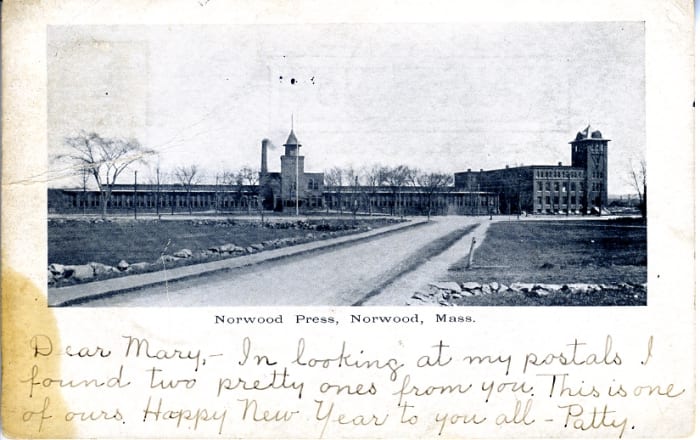 Norwood Press, Norwood, Mass.
Dear Mary,- In looking at my postals I
found two pretty ones from you. This is one
of ours. Happy New Year to you all - Patty.